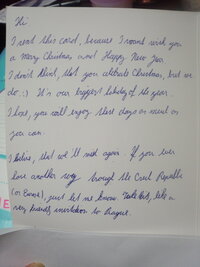 Hi
I send this card, because I want wish you
a Merry Christmas and Happy New Year
I don't think, that you celebrate Christmas, but we
do. :) It's our biggest holiday of the year.
I hope, you will enjoy these days as much as
you can.
I believe, that we'll meet again. If you ever
have another way through the Czech Republic
(or Europe), just let me know. Take this, like a
very friendly invitation to Prague.